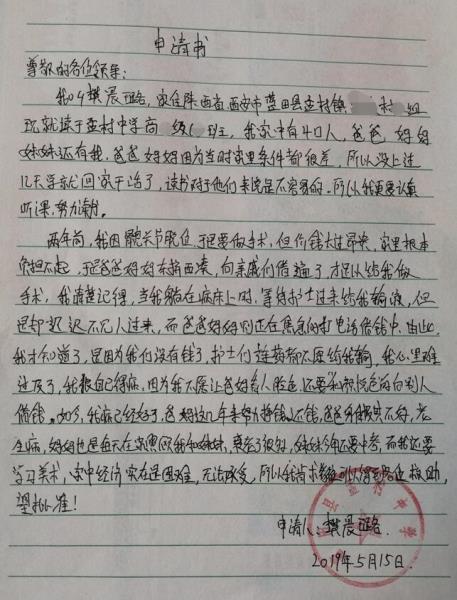 申请书
尊敬的各位领导:
我叫樊晨璐,家住陕西省西安市蓝田县孟村镇 村 组
现就读于孟村中学高 级 班,我家中有4口人,爸爸 妈妈
妹妹还有我,爸爸妈妈因为当时家里条件都很差,所以没上过
几天学就回家干活了,读书对于他们来说是不容易的,所以我更要认真
听课,努力读书。
两年前,我因髋关节脱位于是要做手术,但价钱太过昂贵,家里根本
负担不起,于是爸爸妈妈东拼西凑,向亲戚们借遍了才足以给我做
手术,我清楚记得,当我躺在病床上时,等待护士过来给我输液,但
是却迟迟不见人过来,而爸爸妈妈则正在焦急的打电话借钱中,由此,
我才知道了,是因为我们没有钱了,护士们连药都不愿给我输,我心里难
过及了,我恨自己得病,因为我不愿让爸妈看人脸色还要
借钱。如今,我病已经好了,爸妈这几年来努力挣钱还钱,爸爸身体其实不好,老
生病,妈妈也是每天在 照顾我和妹妹,妹妹今年还要中考,而我还要
学习美术,家中经济实在是困难,无法改变,所以我请求
望批准!
申请人:樊晨璐
2019年5月15日